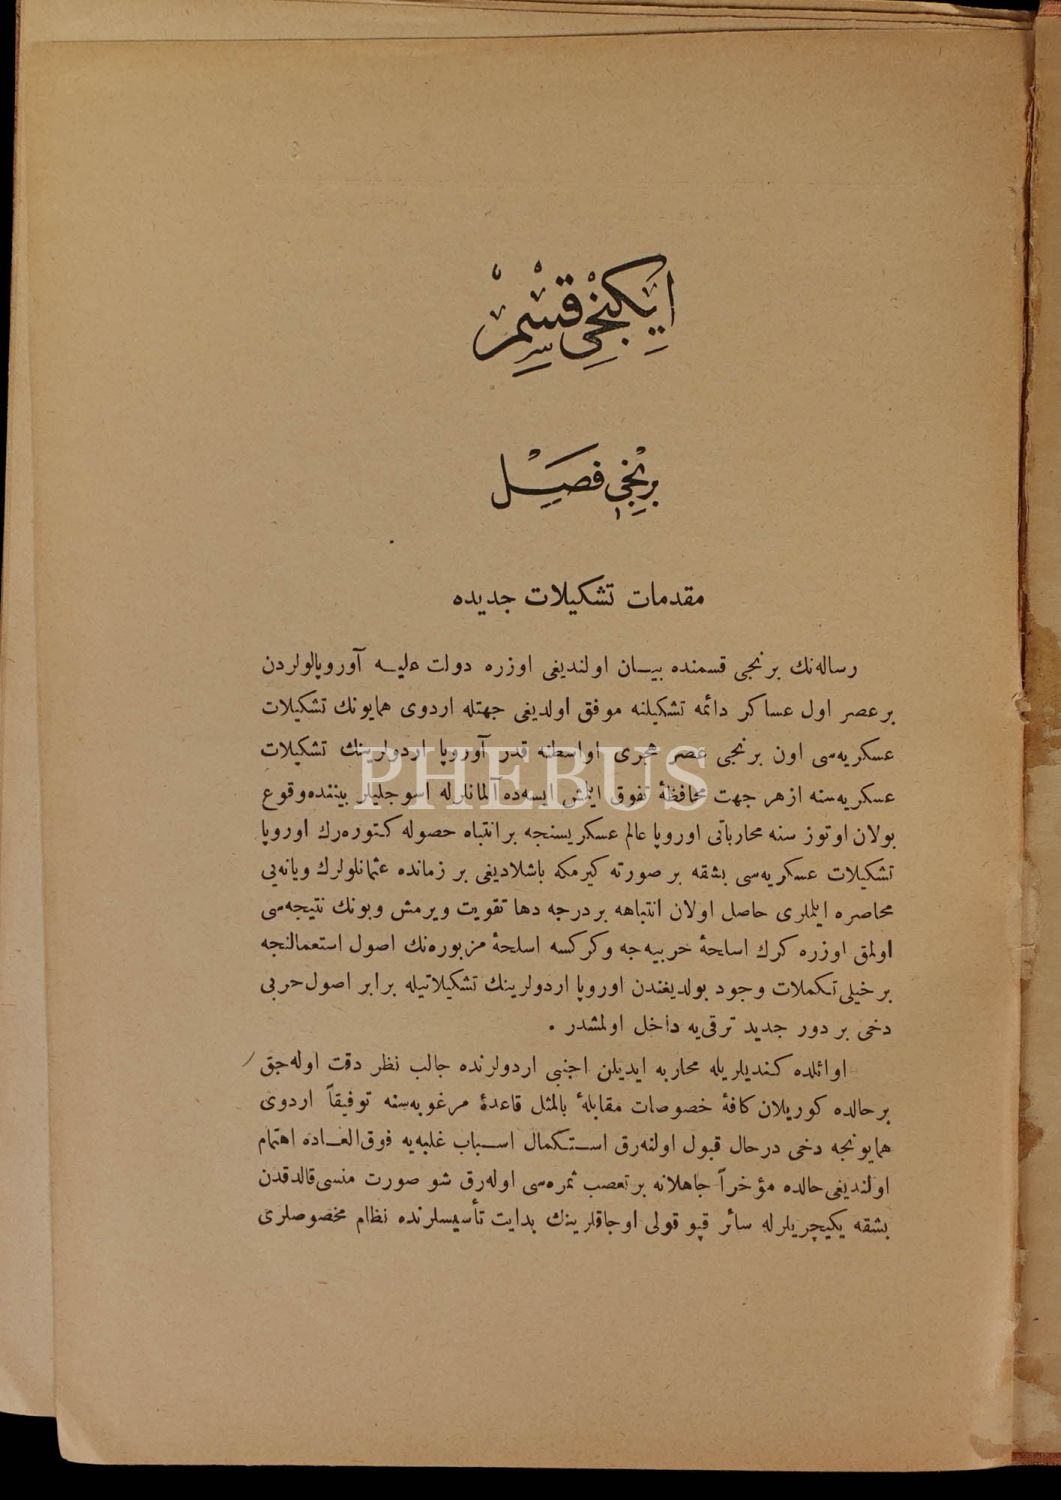 ایكنجی قسم
برنجی فصل
مقدمات تشكیلات جدیده
رساله‌نك برنجی قسمنده بیان اولندیغی اوزره دولت علیه آوروپالولردن
بر عصر اول عساكر دائمه تشكیلنه موفق اولدیغی جهتله اردوی همایونك تشكیلات
عسكریه‌سی اون برنجی عصر هجری اواسطنه قدر آوروپا اردولرینك تشكیلات
عسكریه‌سنه از هر جهت محافظۀ تفوق ایلمش ایسه‌ده آلمانلرله اسوجلیلر بیننده وقوع
بولان اوتوز سنه محارباتی اوروپا عالم عسكریسنجه بر انتباه حصوله كتوره‌رك اوروپا
تشكیلات عسكریه‌سی بشقه بر صورته كیرمكه باشلادیغی بر زمانده عثمانلولرك ویانه‌یی
محاصره ایلملری حاصل اولان انتباهه بر درجه دها تقویت ویرمش وبونك نتیجه‌سی
اولمق اوزره كرك اسلحۀ حربیه‌جه وكركسه اسلحۀ مزبوره‌نك اصول استعمالنجه
بر خیلی تكملات وجود بولدیغندن اوروپا اردولرینك تشكیلاتیله برابر اصول حربی
دخی بر دور جدید ترقی‌یه داخل اولمشدر .
اوائلده كندیلریله محاربه ایدیلن اجنبی اردولرنده جالب نظر دقت اوله‌جق
بر حالده كوریلان كافۀ خصوصات مقابلۀ بالمثل قاعدۀ مرغوبه‌سنه توفیقاً اردوی
همایونجه دخی درحال قبول اولنه‌رق استكمال اسباب غلبه‌یه فوق العاده اهتمام
اولندیغی حالده مؤخراً جاهلانه بر تعصب ثمره‌سی اوله‌رق شو صورت منسی قالدقدن
بشقه یكیچریلرله سائر قپو قولی اوجاقلرینك بدایت تأسیسلرنده نظام مخصوصلری
PHEBUS